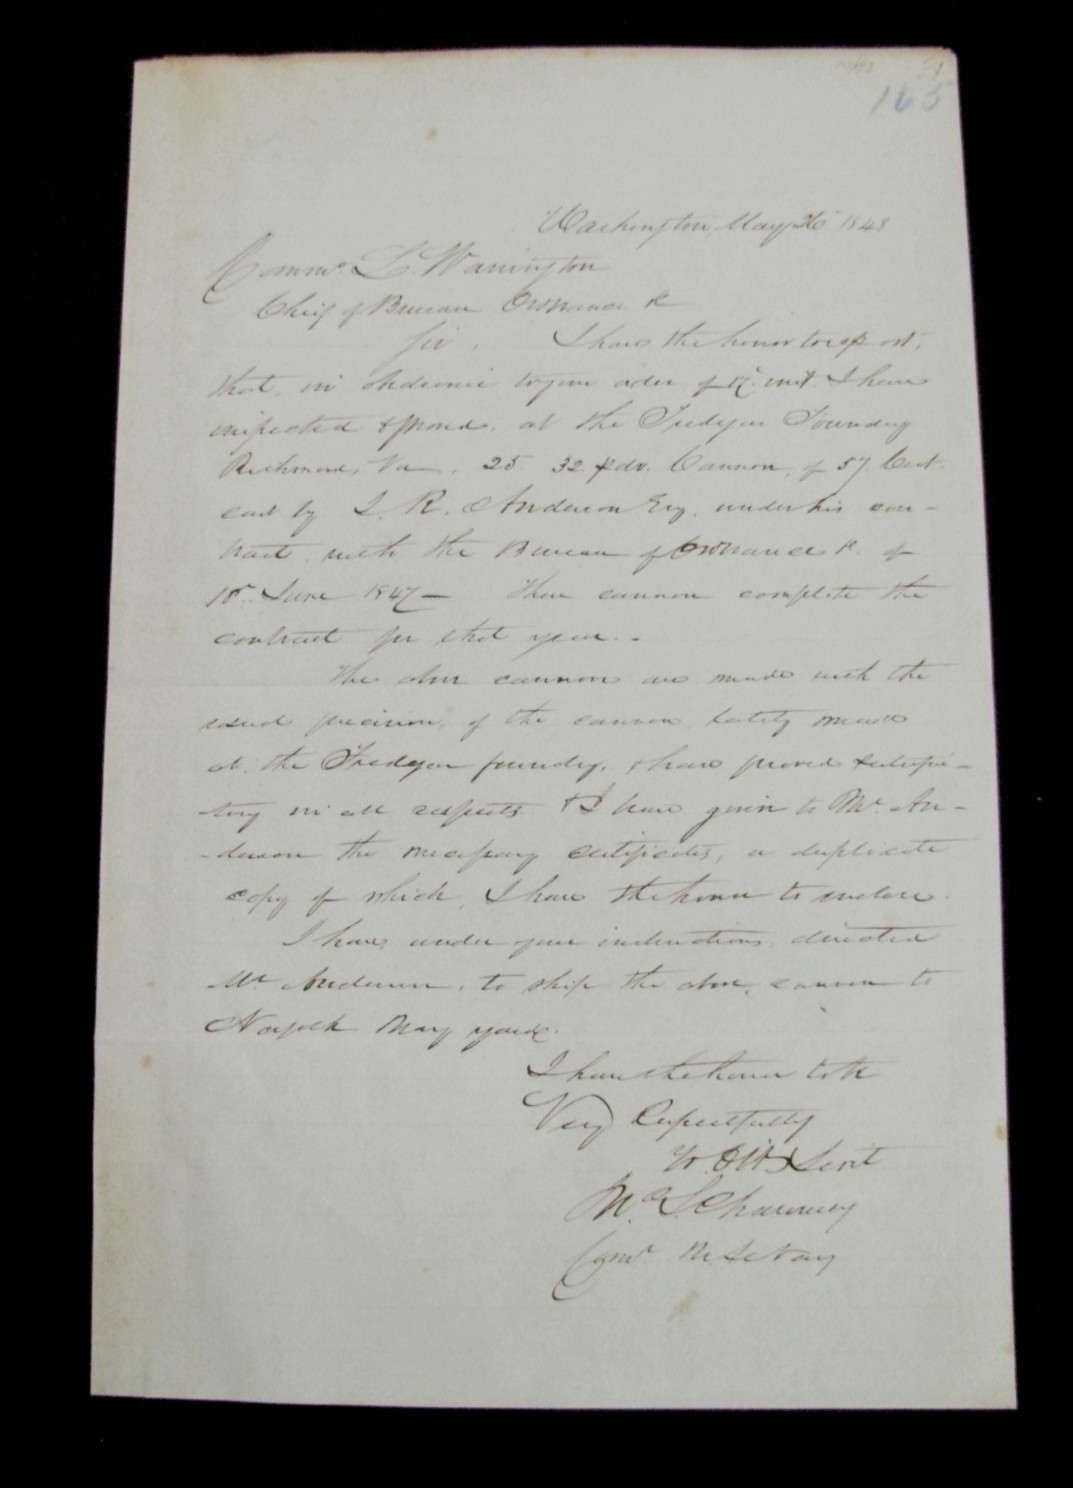 165
Washington, May 26 1848
Commo. L. Warrington
Chief of Bureau Ordnance &c
Sir, I have the honor to report,
that, in obedience to your order of 17. inst. I have
inspected & proved, at the Tredegar Foundry
Richmond, Va, 25. 32 pdr. Cannon, of 57 Cwt.
cast by J. R. Anderson Esq. under his con-
tract, with the Bureau of Ordnance &c. of
June 1847— These cannon complete the
contract for that year.
The above cannon are made with the
usual precision, of the cannon, lately made
at the Tredegar foundry, & have proved satisfac-
tory in all respects & I have given to Mr. An-
-derson the necessary certificates, a duplicate
copy of which, I have the honor to enclose.
I have, under your instructions, directed
Mr Anderson, to ship the above cannon to
Norfolk Navy yard.
I have the honor to be
Very Respectfully
Yr. Obt. Servt
Comdr. U. S. Navy